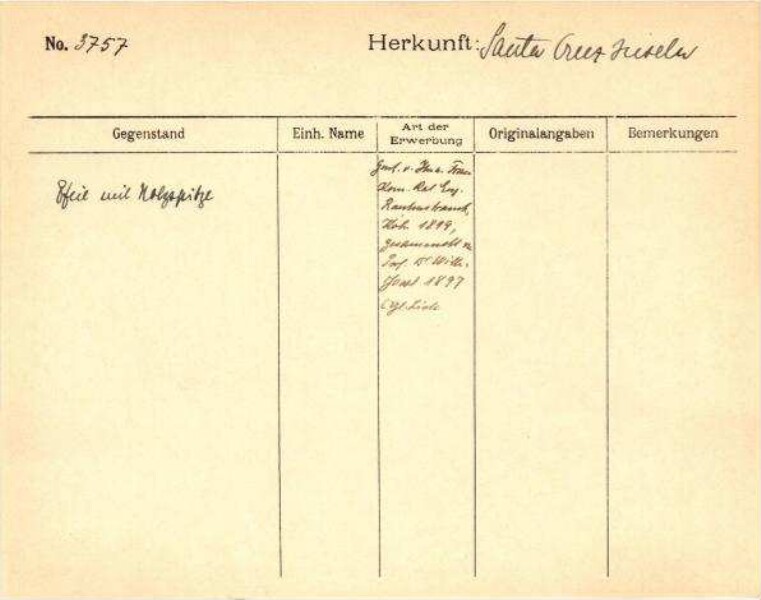 No. 3757
Herkunft: Santa Cruz Inseln
Gegenstand
Einh. Name
Art der Erwerbung
Originalangaben
Bemerkungen
Pfeil mit Holzspitze
Gesch. v. Frau
Kom. Rat Eug.
Rautenstrauch,
Köln 1899,
gesammelt v.
Prof. Dr Wilh.
Joest 1897